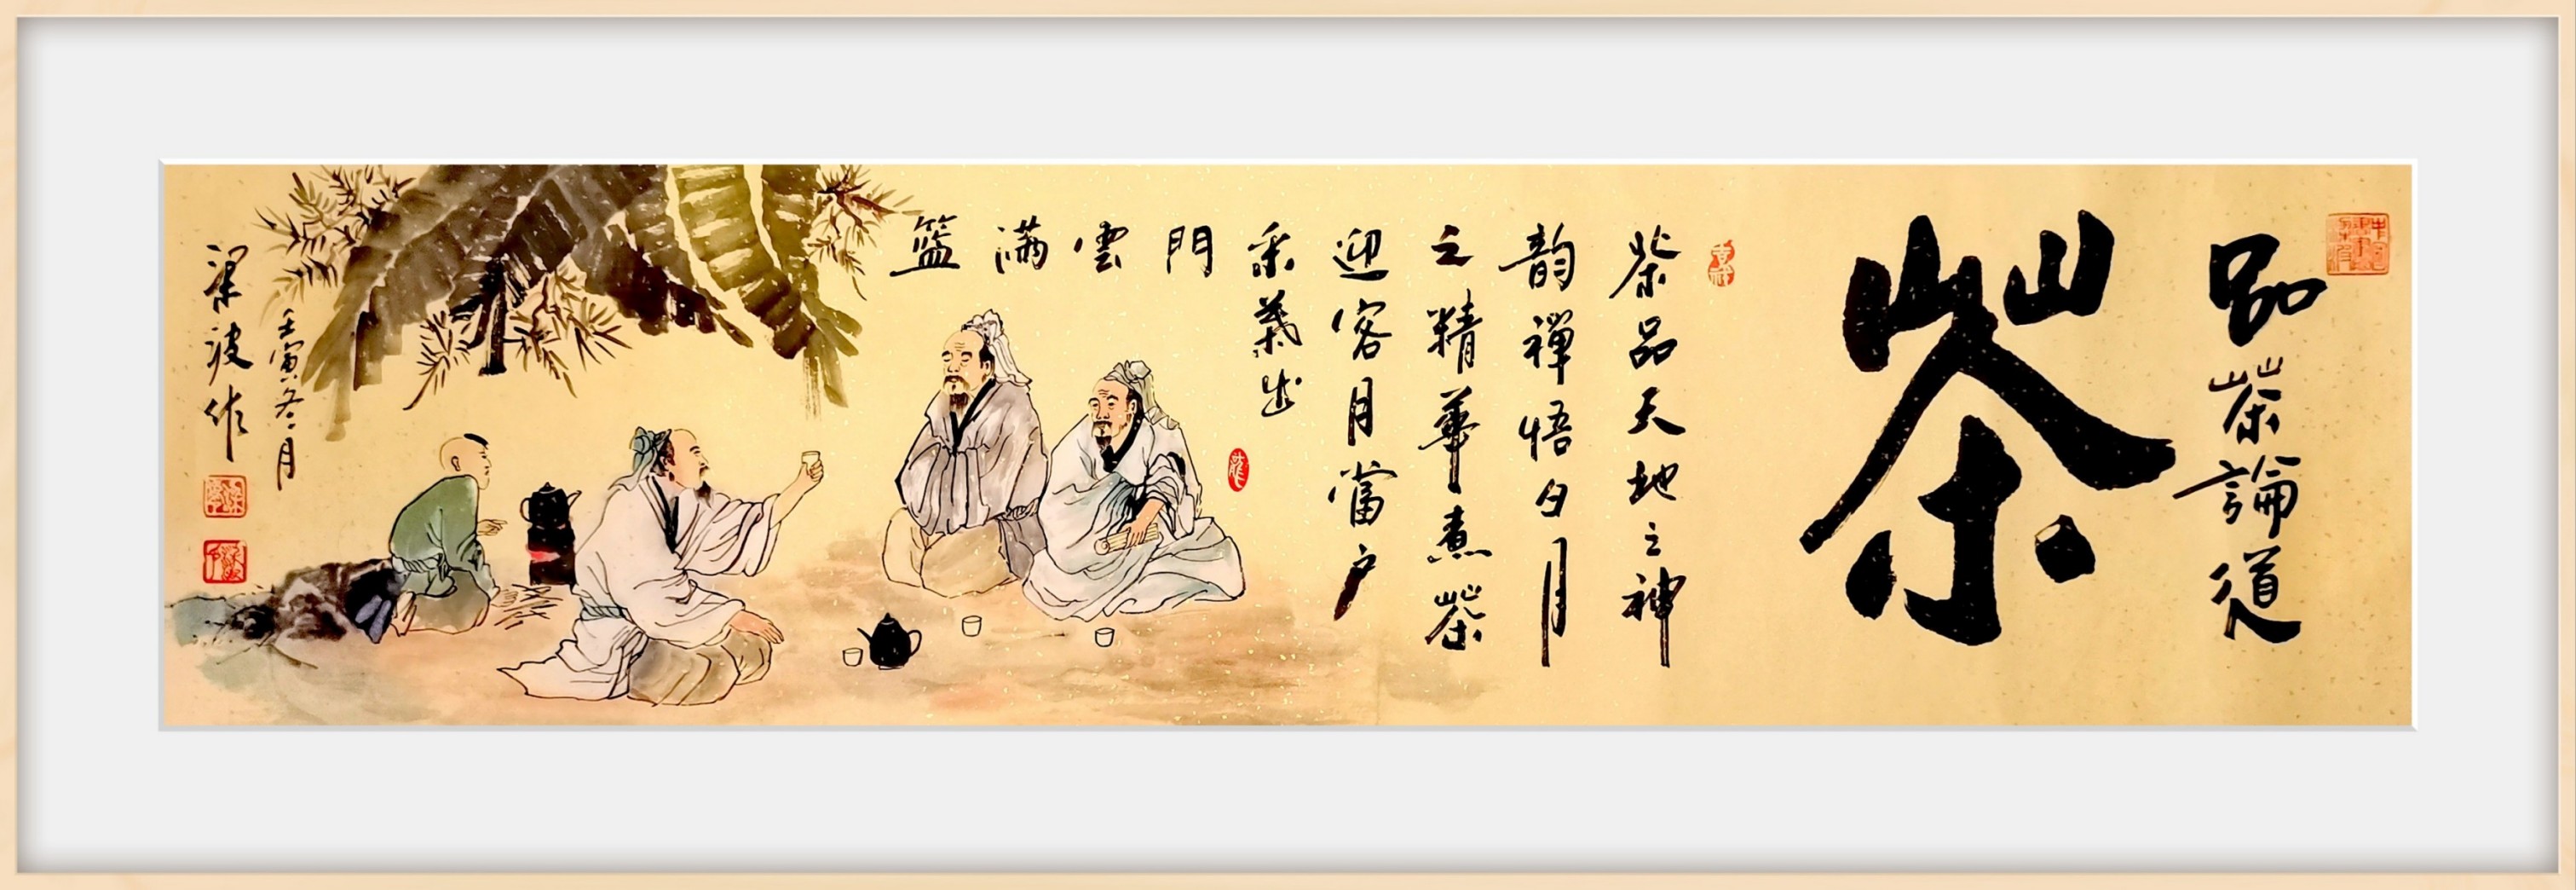 品茶論道
茶
茶品天地之神
韵禪悟夕月
之精華煮茶
迎客月當户
采藥出
門
雲
滿
籃
壬寅冬月
梁波作